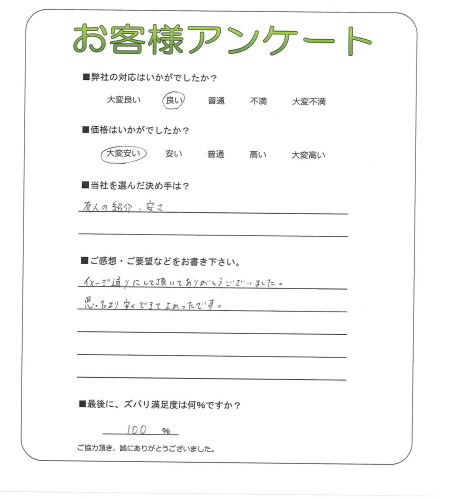 お客様アンケート
■弊社の対応はいかがでしたか？
大変良い 良い 普通 不満 大変不満
■価格はいかがでしたか？
大変安い 安い 普通 高い 大変高い
■当社を選んだ決め手は？
友人の紹介、安さ
■ご感想・ご要望などをお書き下さい。
イメージ通りにして頂いてありがとうございました。
思ったより安くできてよかったです。
■最後に、ズバリ満足度は何%ですか？
100 %
ご協力頂き、誠にありがとうございました。